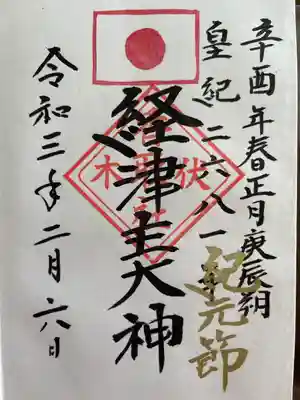 辛酉年春正月庚辰朔
皇紀二六八一年
紀元節
経津主大神
伏
木
令和三年二月六日